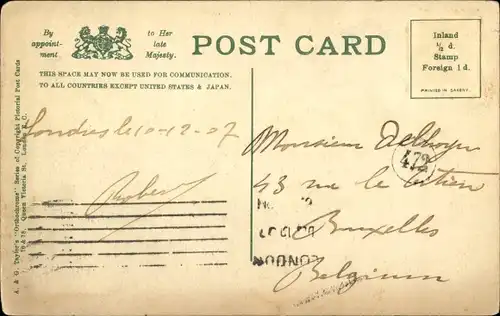 By
appoint-
ment
to Her
late
Majesty.
POST CARD
THIS SPACE MAY NOW BE USED FOR COMMUNICATION.
TO ALL COUNTRIES EXCEPT UNITED STATES & JAPAN.
Inland
½ d.
Stamp
Foreign 1 d.
PRINTED IN SAXONY.
A. & G. Taylor's "Orthochrome" Series of Copyright Pictorial Post Cards
70 & 78, Queen Victoria St. London E.C.
Londres le 10-12-07
Robert
Monsieur
472
43 rue le
Bruxelles
Belgium
LONDON